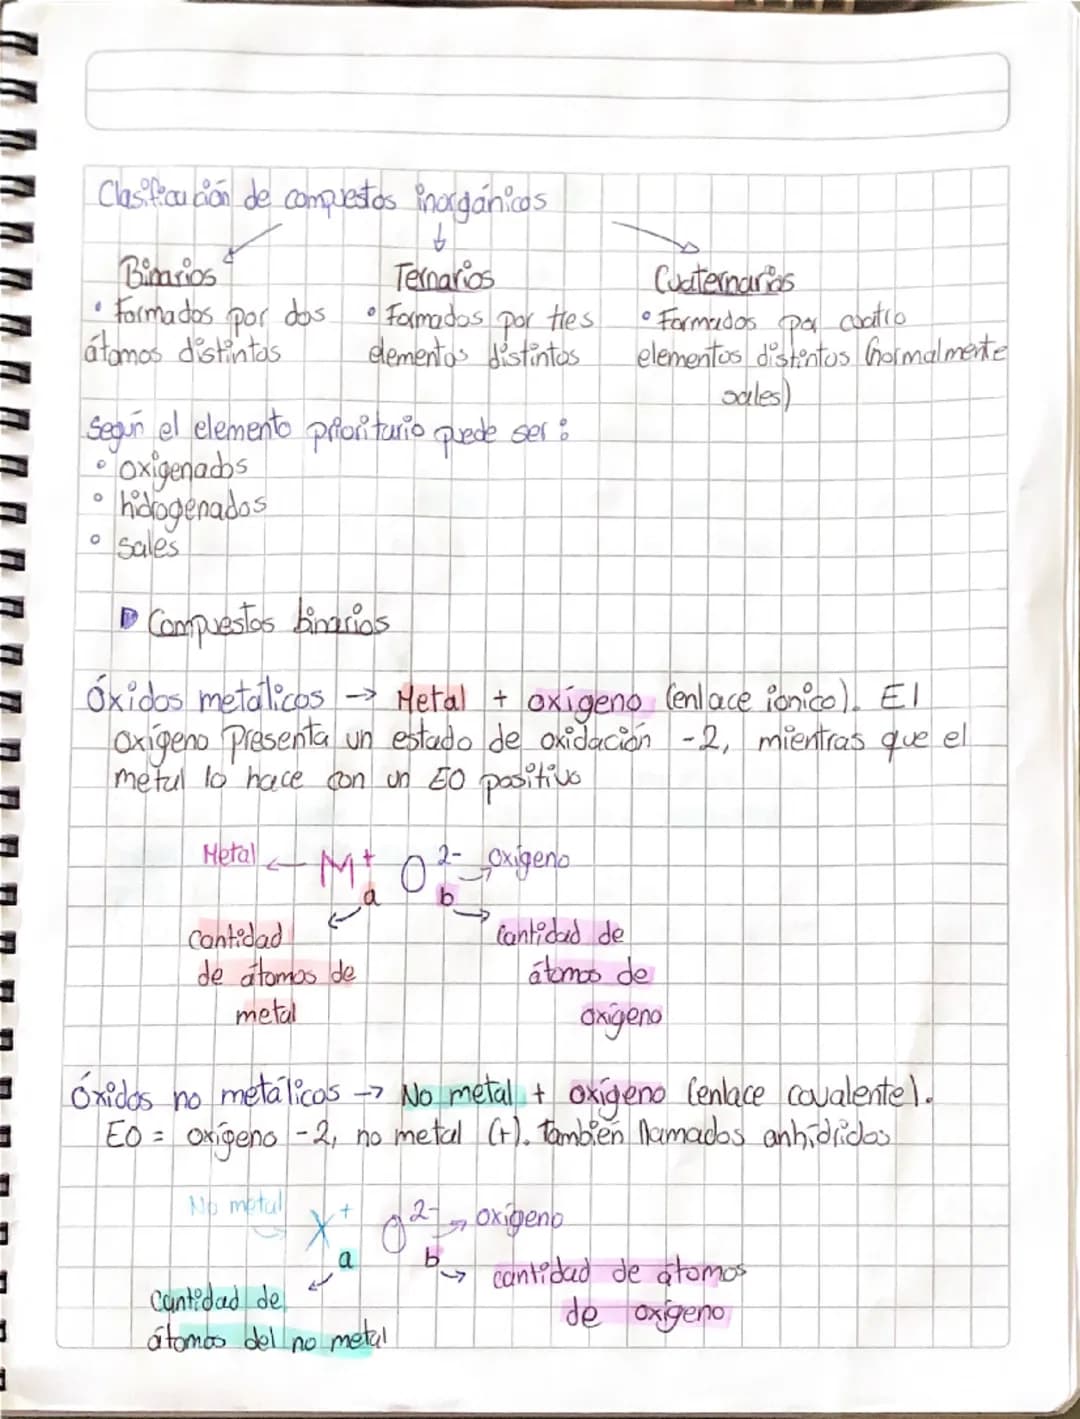 Clasificación de compuestos inorgánicos
Binarios
• Formados por dos
átomos distintos
Ternarios
• Formados por tres
elementos distintos
Cuaternarios
• Formados por cuatro
elementos distintos (normalmente
sales)
Según el elemento prioritario puede ser:
• oxigenados
• hidrogenados
• sales
Compuestos binarios
Óxidos metálicos → Metal + oxígeno (enlace iónico). El
oxígeno presenta un estado de oxidación -2, mientras que el
metal lo hace con un EO positivo
Metal ← M⁺ₐ O²⁻ b → oxígeno
Cantidad
de átomos de
metal
Cantidad de
átomos de
oxígeno
Óxidos no metálicos → No metal + oxígeno (enlace covalente).
EO = oxígeno -2, no metal (+). También llamados anhídridos
No metal X⁺ₐ O²⁻ b → oxígeno
Cantidad de
átomos del no metal
cantidad de átomos
de oxígeno